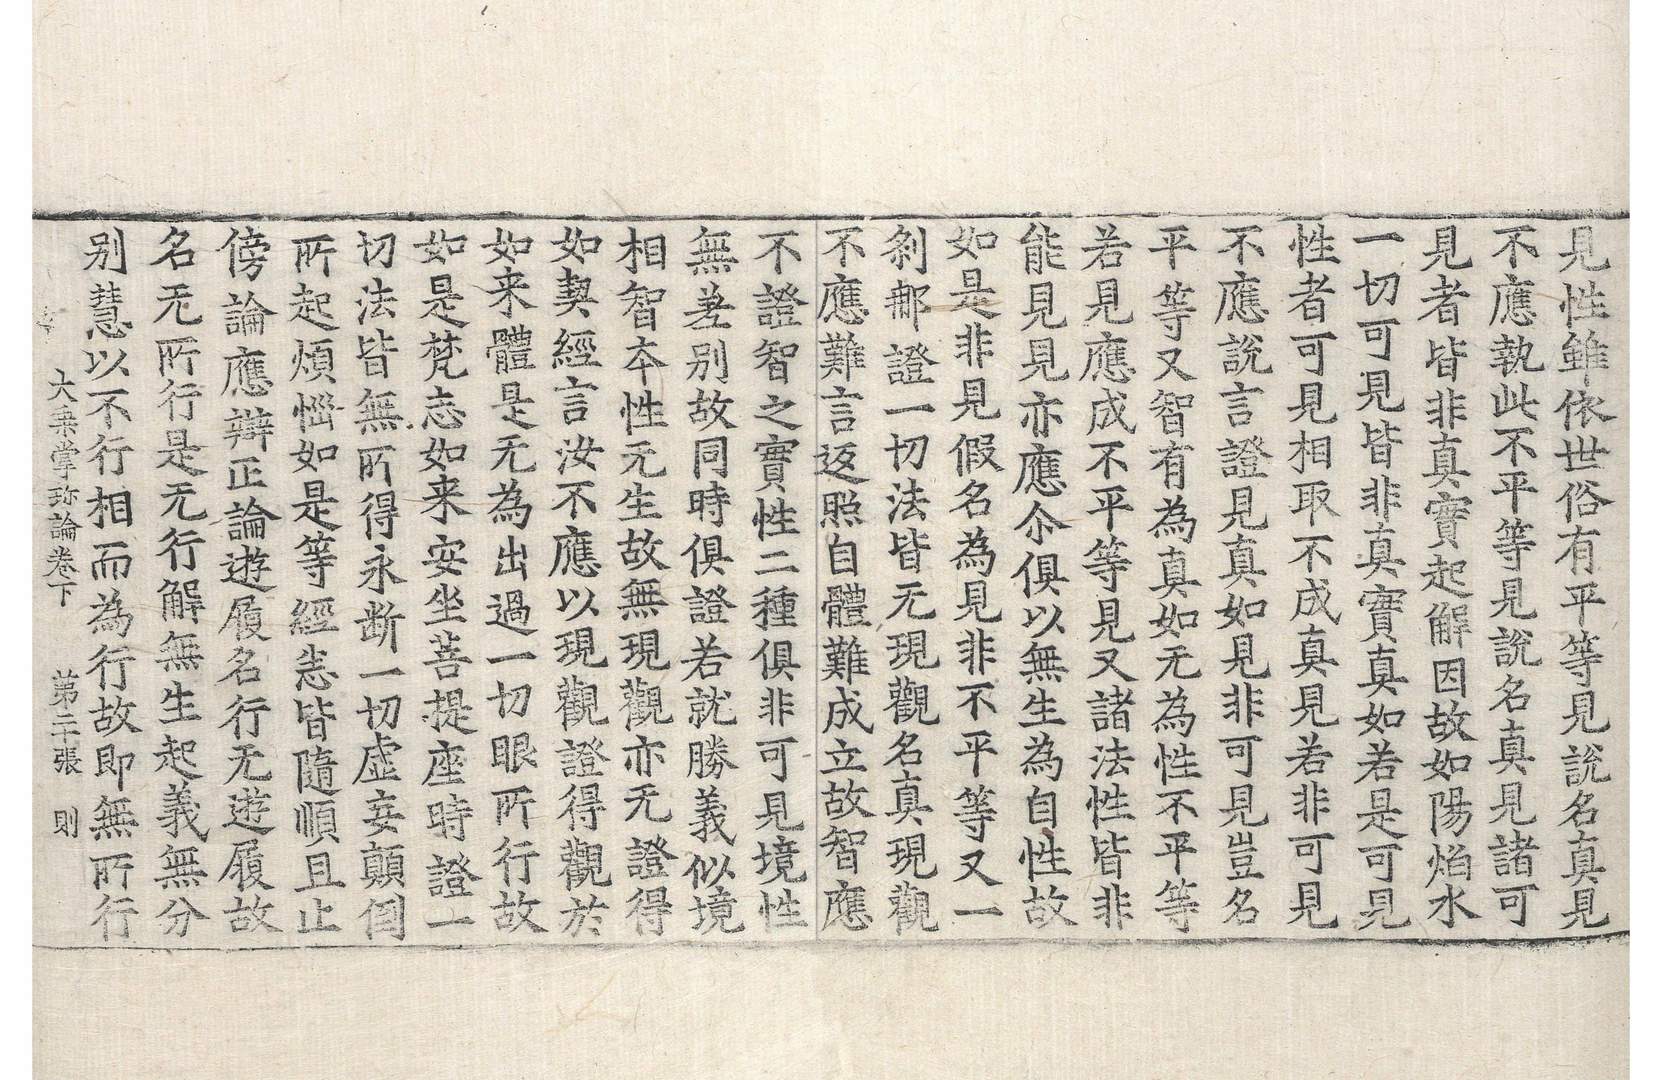 見性雖依世俗有平等見說名真見
不應執此不平等見說名真見諸可
見者皆非真實起解因故如陽焰水
一切可見皆非真實真如若是可見
性者可見相取不成真見若非可見
不應說言證見真如見非可見豈名
平等又智有為真如无為性不平等
若見應成不平等見又諸法性皆非
能見見亦應尒俱以無生為自性故
如是非見假名為見非不平等又一
剎那證一切法皆无現觀名真現觀
不應難言返照自體難成立故智應
不證智之實性二種俱非可見境性
無差别故同時俱證若就勝義似境
相智夲性无生故無現觀亦无證得
如契經言汝不應以現觀證得觀於
如来體是无為出過一切眼所行故
如是梵志如来安坐菩提座時證一
切法皆無所得永断一切虛妄顛倒
所起煩惱如是等經恙皆隨順且止
傍論應辯正論遊履名行无遊履故
名无所行是无行解無生起義無分
别慧以不行相而為行故即無所行
大乗掌珎論卷下　第二十張　則